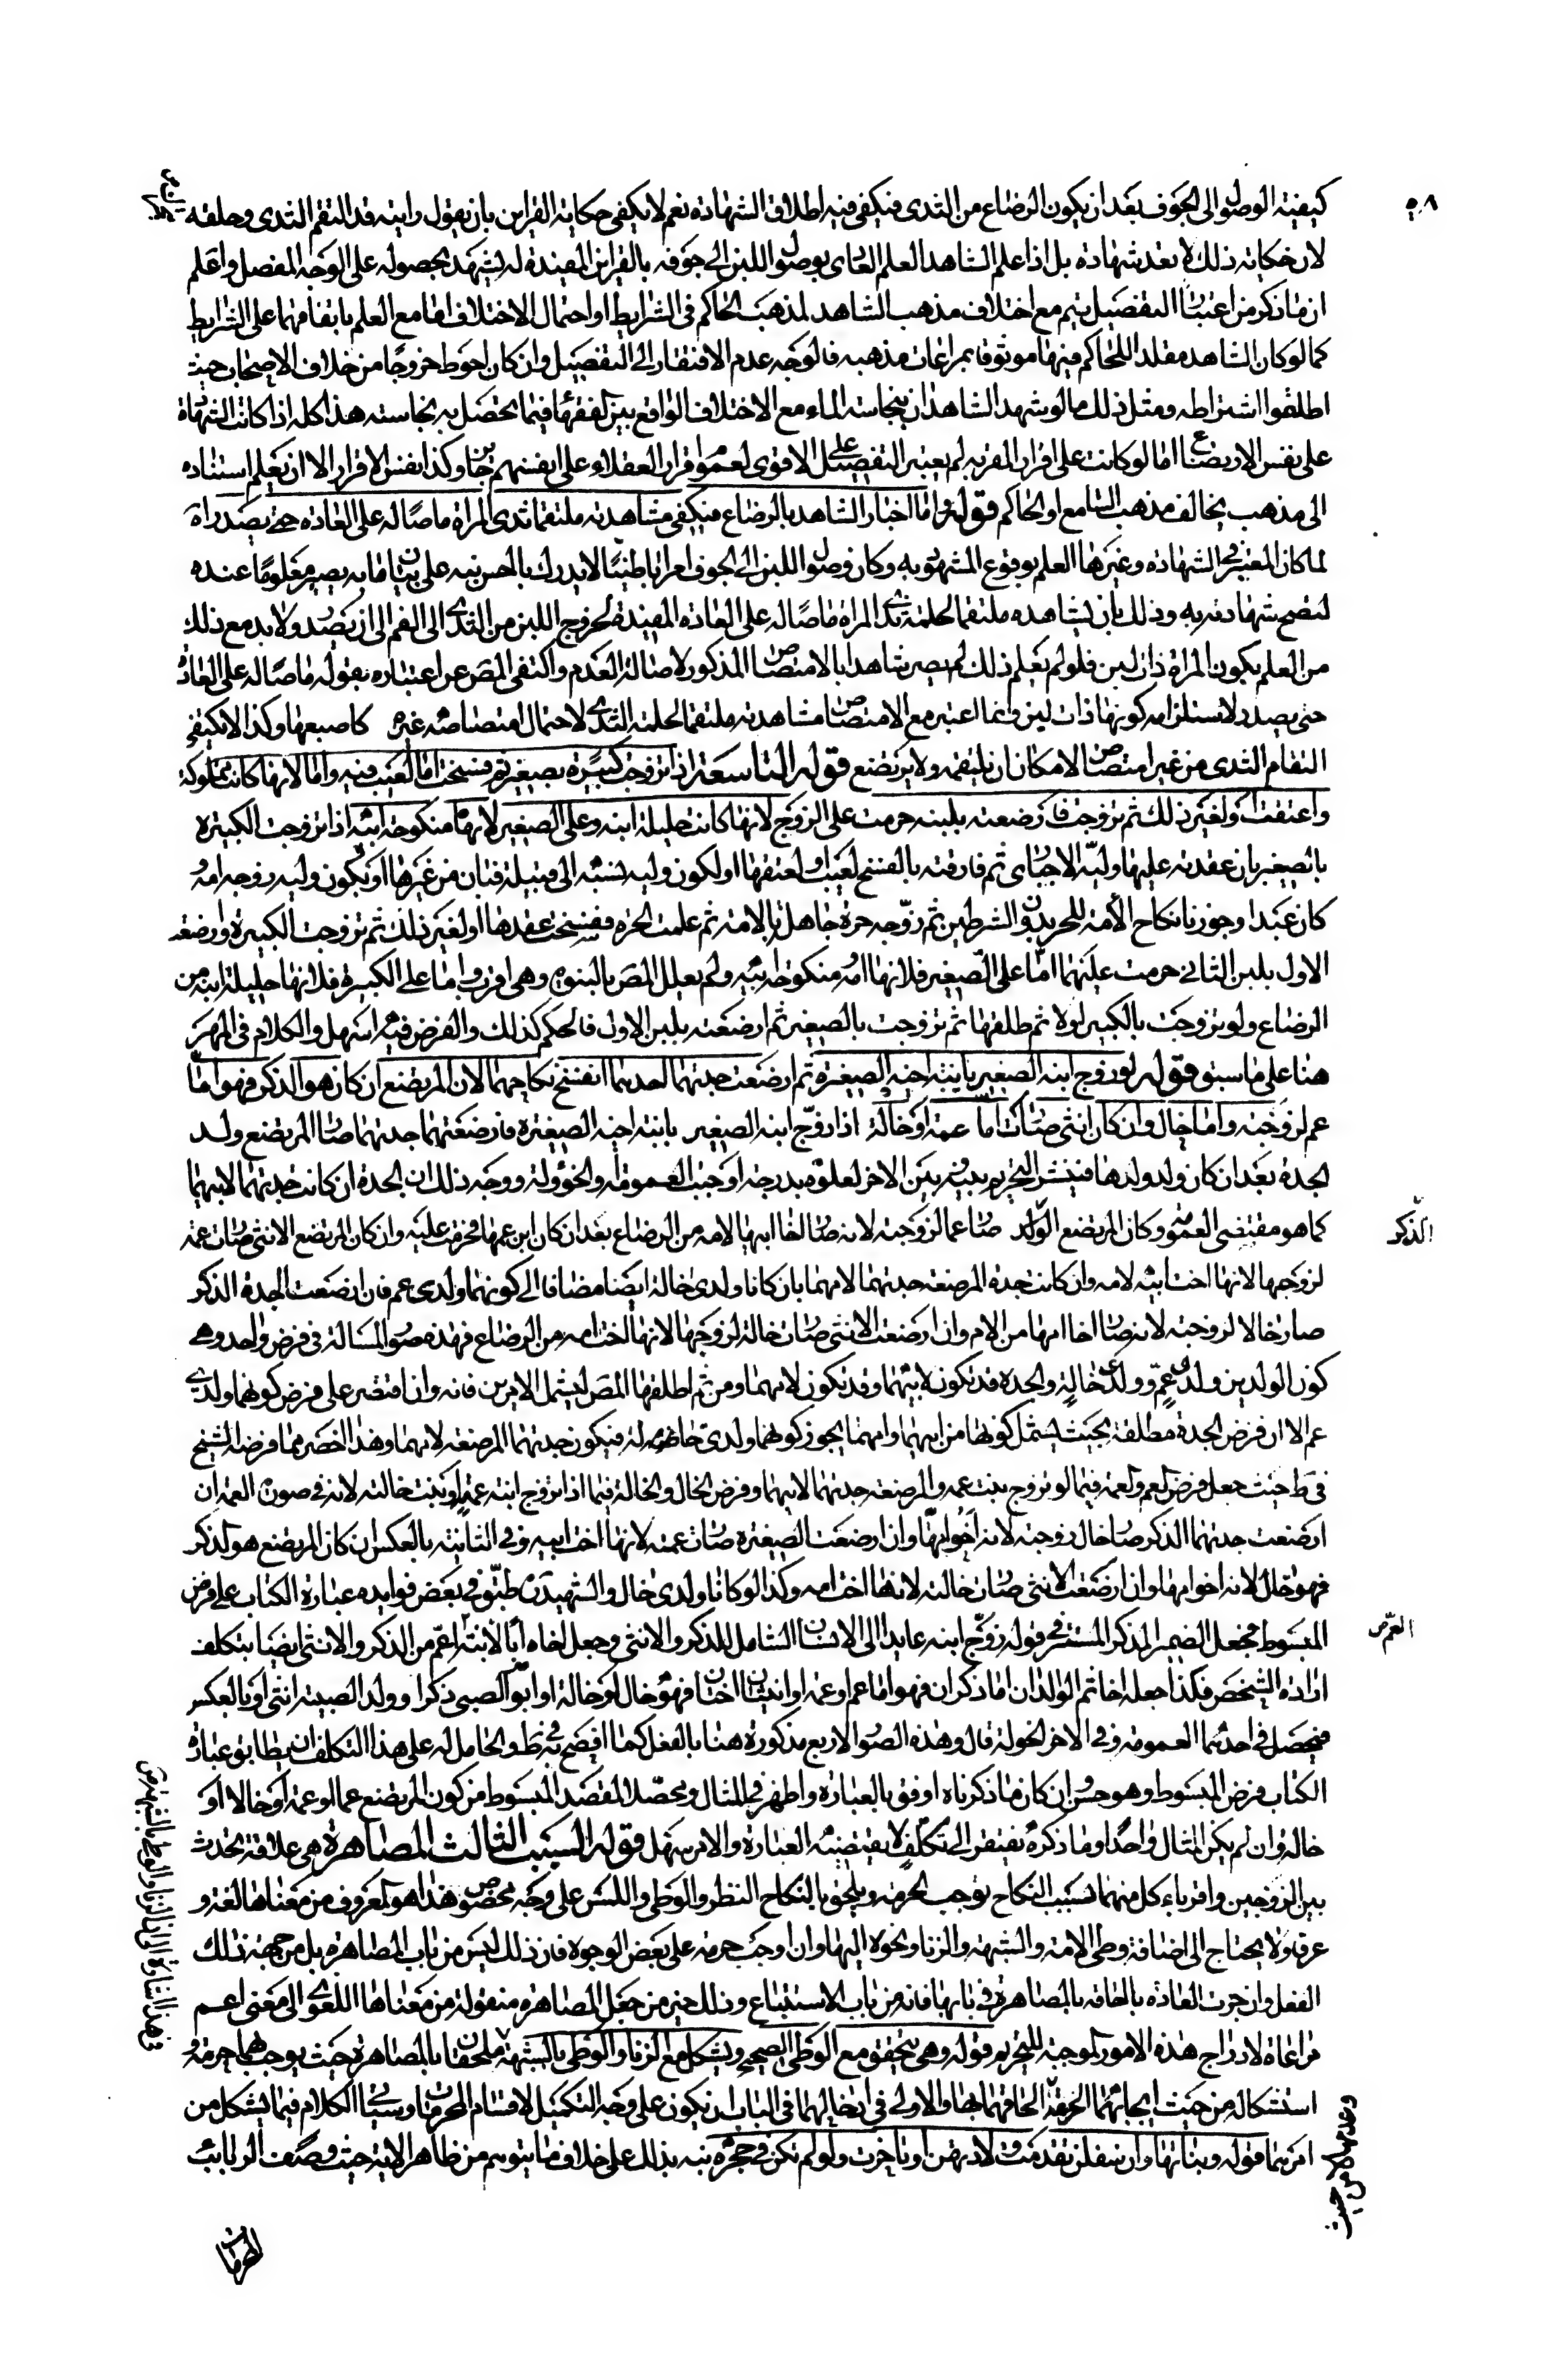 كيفيته الوصول الى الجوف بعد ان يكون الرضاع من الثدى فيكفى فيه اطلاق الشهادة نعم لا يكفى حكاية القراين بان يقول رايته قد التقم الثدى وحلقه
لان حكاية ذلك لا تعد شهادة بل اذا علم الشاهد العلم العادى بوصول اللبن الى جوفه بالقراين المفيدة له يشهد بحصوله على الوجه المفصل واعلم
ان ما ذكر من اعتبار التفصيل يتم مع اختلاف مذهب الشاهد لمذهب الحاكم فى الشرايط او احتمال الاختلاف اما مع العلم باتفاقهما على الشرايط
كما لو كان الشاهد مقلدا للحاكم فيها موثوقا بمراعات مذهبه فالوجه عدم الافتقار الى التفصيل وان كان احوط خروجا من خلاف الاصحاب حيث
اطلقوا اشتراطه ومثل ذلك ما لو شهد الشاهدان بنجاسة الماء مع الاختلاف الواقع بين الفقهاء فيما تحصل به نجاسته هذا كله اذا كانت الشهادة
على نفس الارضاع اما لو كانت على اقرار المقر به لم يعتبر التفصيل على الاقوى لعموم اقرار العقلاء على انفسهم جايز وكذا نفس الاقرار الا ان يعلم استناده
الى مذهب يخالف مذهب السامع او الحاكم قوله واما اخبار الشاهد بالرضاع فيكفى مشاهدته ملتقما ثدى المراة ماصا له على العادة حتى يصدر اه
لما كان المعتبر فى الشهادة وغيرها العلم بوقوع المشهود به وكان وصول اللبن الى الجوف امرا باطنيا لا يدرك بالحس نبه على بيان ما به يصير معلوما عنده
لتصح شهادته به وذلك بان يشاهده ملتقما لحلمة ثدى المراة ماصا له على العادة المفيدة لخروج اللبن من الثدى الى الفم الى ان يصدر ولا بد مع ذلك
من العلم بكون المراة ذات لبن فلو لم يعلم ذلك لم يصر شاهدا بالامتصاص المذكور لاصالة العدم واكتفى المص عن اعتباره بقوله ماصا له على العادة
حتى يصدر لاستلزامه كونها ذات لبن وانما اعتبر مع الامتصاص مشاهدته ملتقما لحلمة الثدى لاحتمال امتصاصه غيره كاصبعها وكذا لا يكتفى
التقام الثدى من غير امتصاص لامكان ان يلتقمه ولا يرتضع قوله التاسعة اذا تزوجت كبيرة بصغير ثم فسخت اما لعيب فيه واما لانها كانت مملوكة
واعتقت او لغير ذلك ثم تزوجت فارضعته بلبنه حرمت على الزوج لانها كانت حليلة ابنه وعلى الصغير لانها منكوحة ابيه اذا تزوجت الكبيرة
بالصغير بان عقد به عليها وليه الاجبارى ثم فارقته بالفسخ لعيب او لعتقها او لكون وليه نسبه الى قبيلة فبان من غيرها او يكون وليه زوجه امة
كان عبدا وجوزنا نكاح الامة للحر بدون الشرطين ثم زوجه حرة جاهلة بالامة ثم علمت الحرة ففسخت عقدها او لغير ذلك ثم تزوجت الكبيرة وارضعت
الاول بلبن الثانى حرمت عليهما اما على الصغير فلانها امه منكوحة ابيه ولم يعلل المص بالبنوة وهى اقرب واما على الكبيرة فلانها حليلة ابنه من
الرضاع ولو تزوجت بالكبير اولا ثم طلقها ثم تزوجت بالصغير ثم ارضعته بلبن الاول فالحكم كذلك والفرض فيه اسهل والكلام فى المهر
هنا على ما سبق قوله لو زوج ابنه الصغير بابنة اخيه الصغيرة ثم ارضعت جدتهما احدهما انفسخ نكاحهما لان المرتضع ان كان هو الذكر فهو اما
عم لزوجته واما خال وان كان انثى صارت اما عمة او خالة اذا زوج ابنه الصغير بابنة اخيه الصغيرة فارضعتهما جدتهما صار المرتضع ولد
الجدة بعد ان كان ولد ولدها فينتشر التحريم بينه وبين الاخر لعلوه بدرجة اوجبت العمومة والخؤولة ووجه ذلك ان الجدة ان كانت جدتهما لابيهما
كما هو مقتضى العمومة وكان المرتضع الولد صار عما لزوجته لانه صار اخا ابيها لامه من الرضاع بعد ان كان ابن عمها فحرمت عليه وان كان المرتضع الانثى صارت عمة
الذكر
لزوجها لانها اخت ابيه لامه وان كانت جدة المرضعة جدتهما لامهما بان كانا ولدى خالة ايضا مضافا الى كونهما ولدى عم فان ارضعت الجدة الذكر
صار خالا لزوجته لانه صار اخا امها من الام وان ارضعت الانثى صارت خالة لزوجها لانها اخت امه من الرضاع فهذه صور المسالة فى فرض واحد وهى
كون الولدين ولدى عم وولدى خالة والجدة قد تكون لابيهما وقد تكون لامهما ومن ثم اطلقها المص ليشمل الامرين فانه وان اقتصر على فرض كونهما ولدى
عم الا ان فرض الجدة مطلقة بحيث يشمل كونها من ابيهما وامهما يجوز كونهما ولدى خالة فيكون جدتهما المرضعة لامهما وهذا اخصر مما فرضه الشيخ
فى ط حيث جعل فرض العم والعمة فيما لو تزوج بنت عمه والمرضعة جدتهما لابيهما وفرض الخال والخالة فيما اذا تزوج ابنة عمته او بنت خالته لانه فى صورة العمة ان
ارضعت جدتهما الذكر صار خال زوجته لانه اخو امها وان ارضعت الصغيرة صارت عمته لانها اخت ابيه وفى الثانية بالعكس ان كان المرتضع هو الذكر
فهو خال لانه اخو امها وان ارضعت الانثى صارت خالته لانها اخت امه وكذا لو كانا ولدى خال والشهيد ره طبق فى بعض فوايده عبارة الكتاب على فرض
المبسوط فجعل الضمير المذكر المستتر فى قوله زوج ابنه عايدا الى الانسان الشامل للذكر والانثى وجعل اخاه ابا لابنة اعم من الذكر والانثى ايضا بتكلف
ارادة الشخص فكذا جعله اخا ثم الولدان اما ذكران فهو اما عم او عمة او انثيان اختان فهو خال او خالة او ابو الصبى ذكرا وولد الصبية انثى او بالعكس
فيحصل فى احدهما العمومة وفى الاخر الخؤولة قال وهذه الصور الاربع مذكورة هنا بالفعل كما افصح به فى ط والحامل له على هذا التكلف ان يطابق عبارة
الكتاب فرض المبسوط وهو حسن ان كان ما ذكرناه اوفق بالعبارة واظهر فى المثال ومحصلا لمقصد المبسوط من كون المرتضع عما او عمة او خالا او
خالة وان لم يكن المثال واحدا وما ذكره يفتقر الى تكلف لا يقتضيه العبارة والامر سهل قوله السبب الثالث المصاهرة هى علاقة تحدث
بين الزوجين واقرباء كل منهما بسبب النكاح توجب الحرمة ويلحق بالنكاح النظر والوطى واللمس على وجه مخصوص هذا هو المعروف من معناها لغة و
عرفا ولا يحتاج الى اضافة وطى الامة والشبهة والزنا ونحوه اليها وان اوجب حرمة على بعض الوجوه فان ذلك ليس من باب المصاهرة بل من جهة ذلك
الفعل وان جرت العادة بالحاقه بالمصاهرة فى بابها فانه من باب الاستتباع وذلك خير من جعل المصاهرة منقولة من معناها اللغوى الى معنى اعم
مراعاة لادراج هذه الامور الموجبة للتحريم قوله وهى تتحقق مع الوطى الصحيح ويشكل مع الزنا والوطى بالشبهة ملحقان بالمصاهرة حيث يوجب بهما حرمة و
استشكاله من حيث ايجابهما الحرمة الحاقهما بها والاولى فى ادخالهما فى الباب ان يكون على وجه التكميل لاقسام المحرمات وسياتى الكلام فيما يشكل من
امرهما قوله وبناتها وان سفلن تقدمت ولادتهن او تاخرت ولو لم تكن فى حجره نبه بذلك على خلاف ما يتوهم من ظاهر الاية حيث وصف الربايب
المحرمات